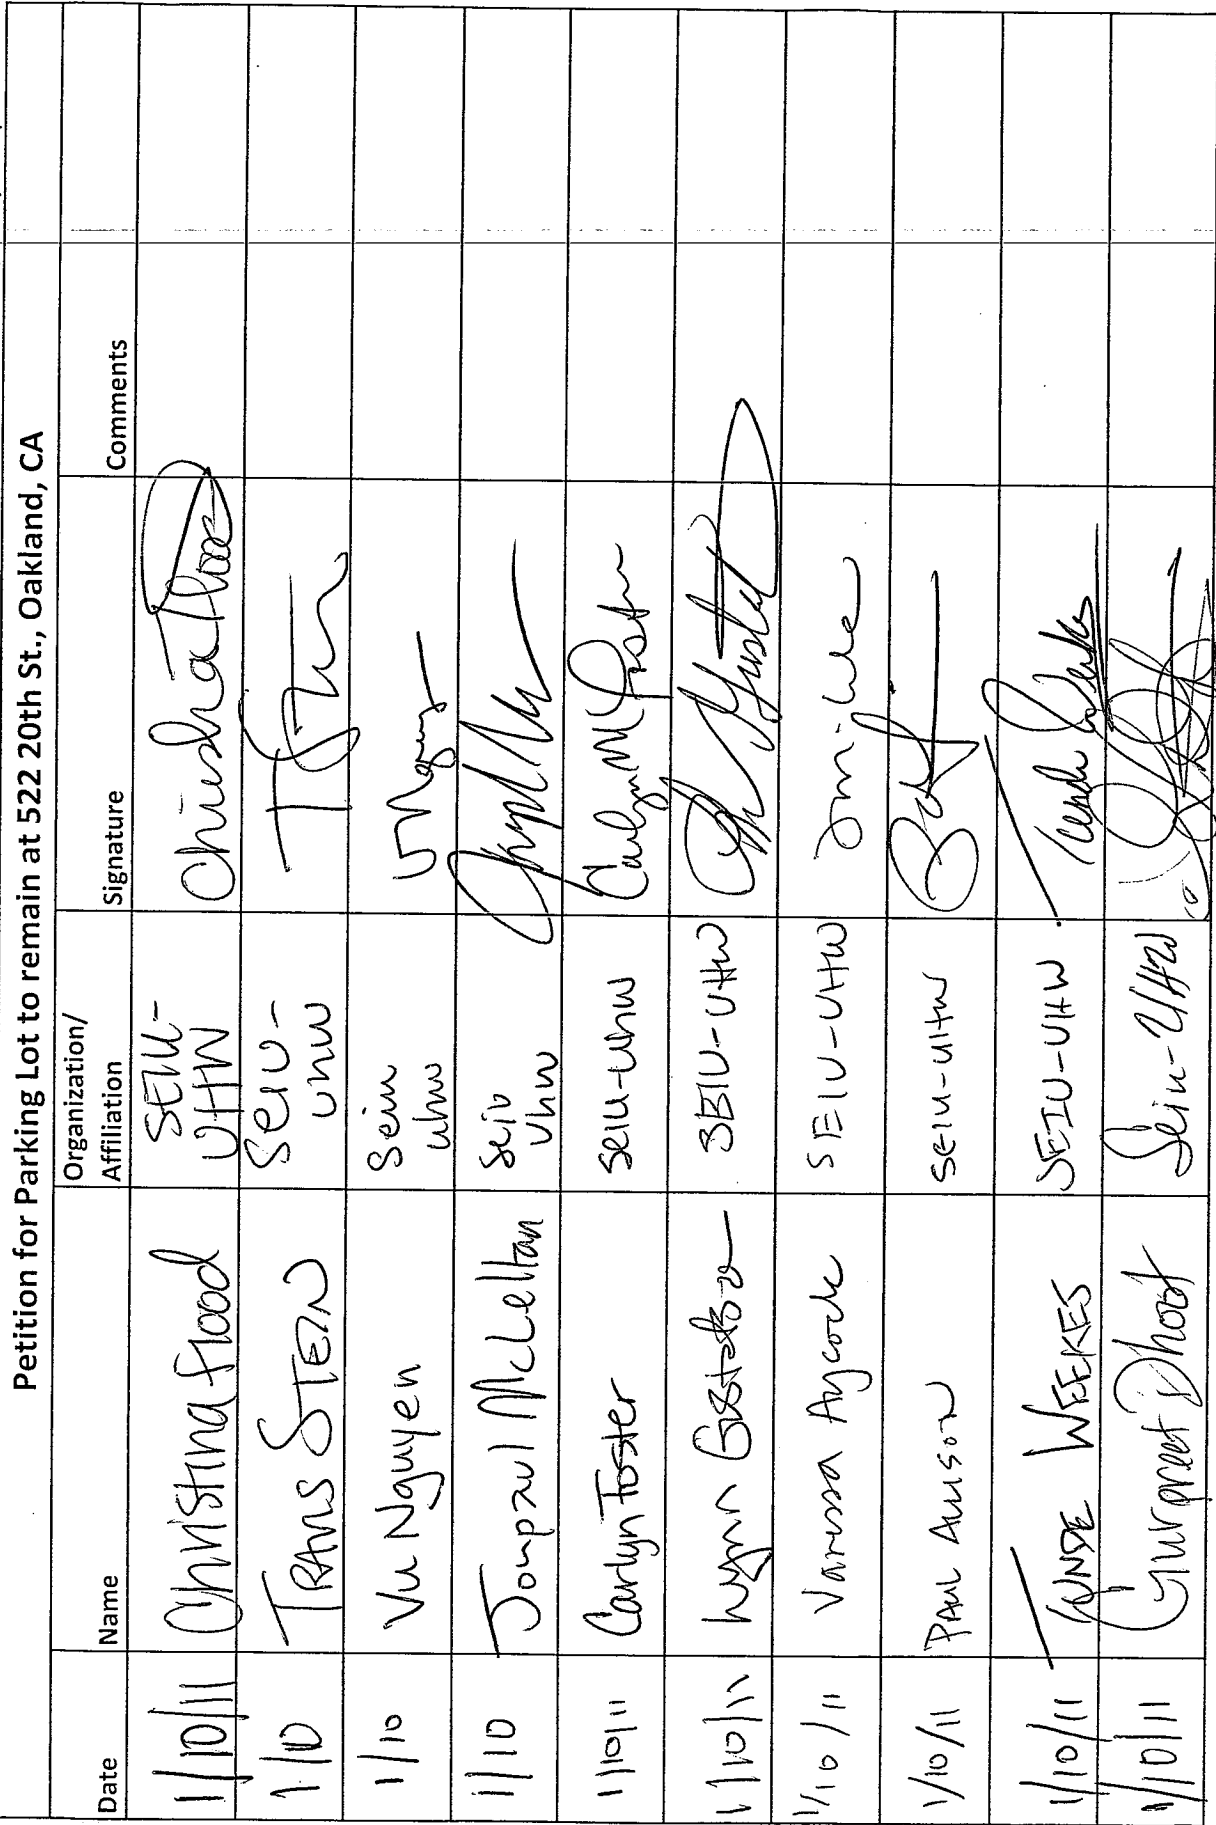 Petition for Parking Lot to remain at 522 20th St., Oakland, CA
Date Name Organization/ Affiliation Signature Comments
1/10/11 Christina Flood SEIU-UHW Christina Flood
1/10 TRAVIS STEIN SEIU-UHW
1/10 Vu Nguyen Seiu uhw VNguyen
1/10 Jonpaul McLellan Seiu Uhw
1/10/11 Carlyn Foster SEIU-UHW Carlyn M Foster
1/10/11 Lynn Gustafson SEIU-UHW
1/10/11 Vanessa Aycock SEIU-UHW
1/10/11 PAUL ALLISON SEIU-UHW
1/10/11 TUNDE WEEKES SEIU-UHW Tunde Weekes
1/10/11 Gurpreet Dhoot Seiu-UHW